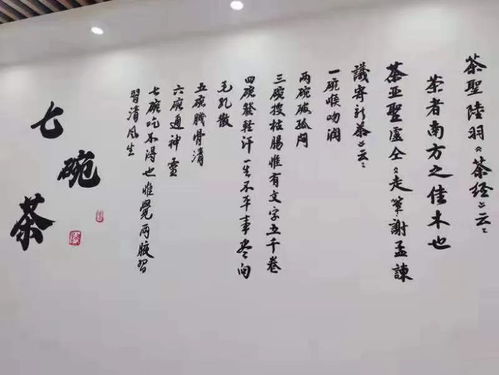 茶聖陸羽《茶经》云:
茶者南方之佳木也
茶亚聖盧仝《走筆謝孟諫
議寄新茶》云:
一碗喉吻潤
两碗破孤悶
三碗搜枯腸惟有文字五千卷
四碗發輕汗一生不平事尽向
毛孔散
五碗肌骨清
六碗通神靈
七碗吃不得也惟覺两腋習
習清風生
七碗茶